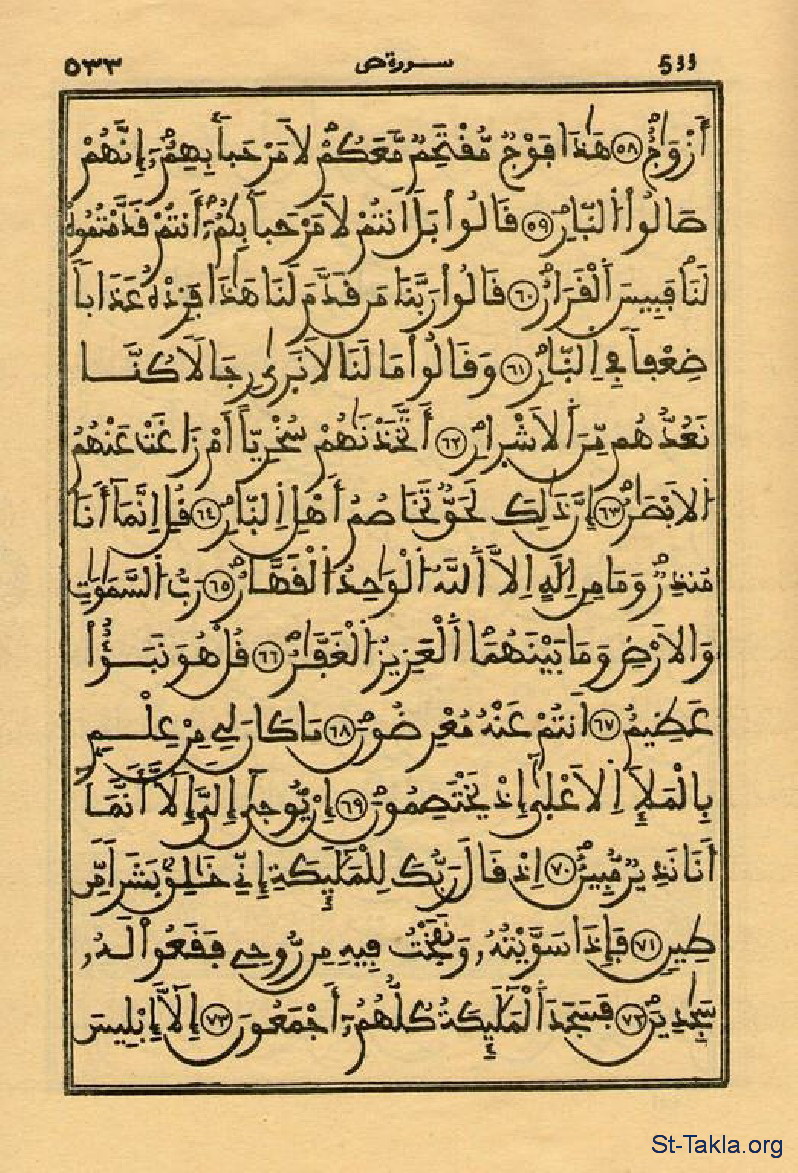 533 سورة ص ٥٣٣
أَزْوَٰجٌ ٥٨ هَٰذَا فَوْجٌ مُّقْتَحِمٌ مَّعَكُمْ لَا مَرْحَباً بِهِمُۥٓ إِنَّهُمْ
صَالُوا۟ اُلنّ۪ارِ ٥٩ قَالُوا۟ بَلَ اَنتُمْ لَا مَرْحَباً بِكُمُۥٓ أَنتُمْ قَدَّمْتُمُوهُ
لَنَا فَبِيسَ اَلْقَرَارُ ٦٠ قَالُوا۟ رَبَّنَا مَن قَدَّمَ لَنَا هَٰذَا فَزِدْهُ عَذَاباً
ضِعْفاً فِي اِلنّ۪ارِ ٦١ وَقَالُوا۟ مَا لَنَا لَا نَرَىٰ رِجَالًا كُنَّا
نَعُدُّهُم مِّنَ اَلَاشْرارِ ٦٢ أَتَّخَذْنَٰهُمْ سُخْرِيّاً أَمْ زَاغَتْ عَنْهُمُ
اُلَابْصَٰرُ ٦٣ إِنَّ ذَٰلِكَ لَحَقٌّ تَخَاصُمُ أَهْلِ اِلنّ۪ارِ ٦٤ قُلِ اِنَّمَآ أَنَا
مُنذِرٌ وَمَا مِنِ اِلَٰهٍ اِلَّا اَللَّهُ اُلْوَٰحِدُ اُلْقَهَّارُ ٦٥ رَبُّ اُلسَّمَٰوَٰتِ
وَالَارْضِ وَمَا بَيْنَهُمَا اَلْعَزِيزُ اُلْغَفَّٰرُ ٦٦ قُلْ هُوَ نَبَؤٌا
عَظِيمٌ ٦٧ أَنتُمْ عَنْهُ مُعْرِضُونَ ٦٨ مَا كَانَ لِي مِنْ عِلْمٍ
بِالْمَلَإِ اِلَاعْلَىٰ إِذْ يَخْتَصِمُونَ ٦٩ إِنْ يُّوحَىٰٓ إِلَيَّ إِلَّآ أَنَّمَآ
أَنَا نَذِيرٌ مُّبِينٌ ٧٠ اِذْ قَالَ رَبُّكَ لِلْمَلَٰٓئِكَةِ إِنِّي خَٰلِقٌ بَشَراً مِّن
طِينٍ ٧١ فَإِذَا سَوَّيْتُهُۥ وَنَفَخْتُ فِيهِ مِن رُّوحِي فَقَعُوا۟ لَهُۥ
سَٰجِدِينَ ٧٢ فَسَجَدَ اَلْمَلَٰٓئِكَةُ كُلُّهُمُۥٓ أَجْمَعُونَ ٧٣ إِلَّآ إِبْلِيسَ
St-Takla.org